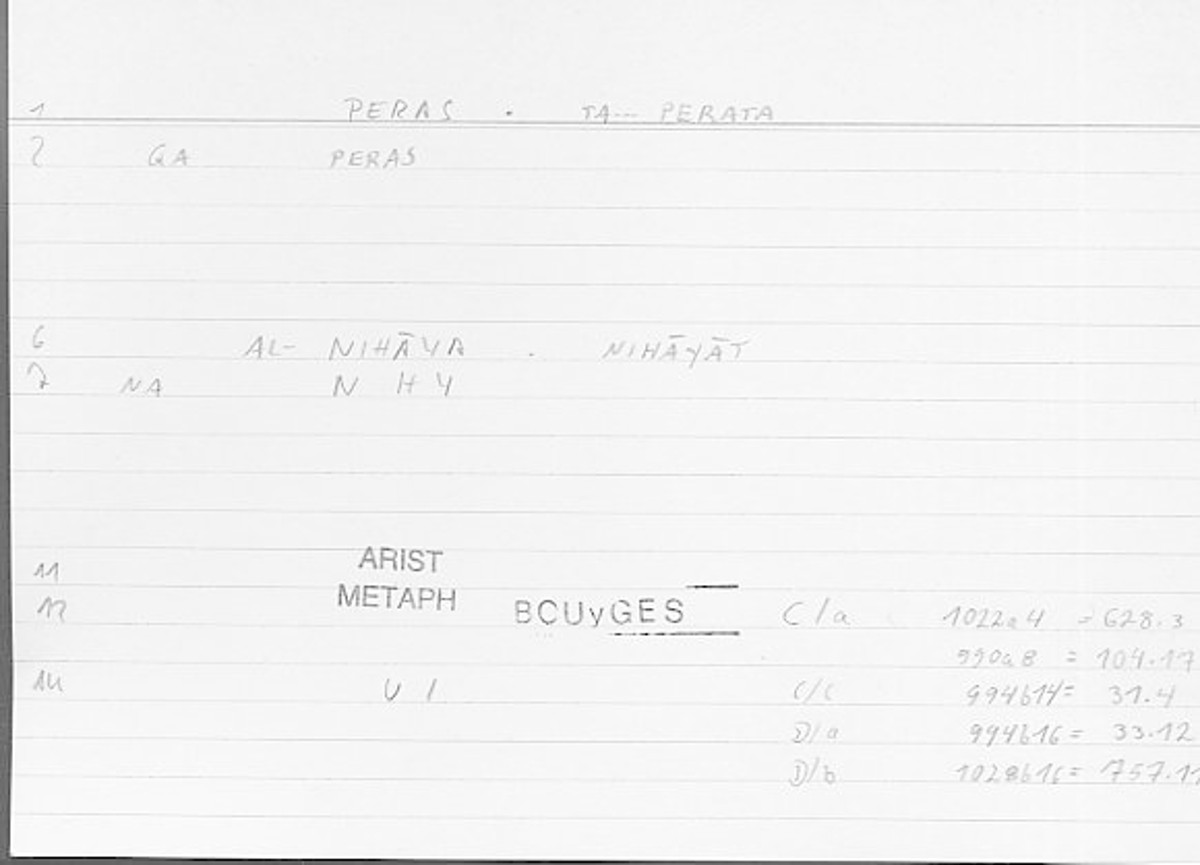 1 PERAS . TA-- PERATA
2 GA PERAS
6 AL- NIHĀYA . NIHĀYĀT
7 NA N H Y
11 ARIST
12 METAPH BOUyGES C/a 1022a4 = 628.3
990a8 = 104.17
14 U I C/c 994b14= 31.4
D/a 994b16= 33.12
D/b 1028b16= 757.11